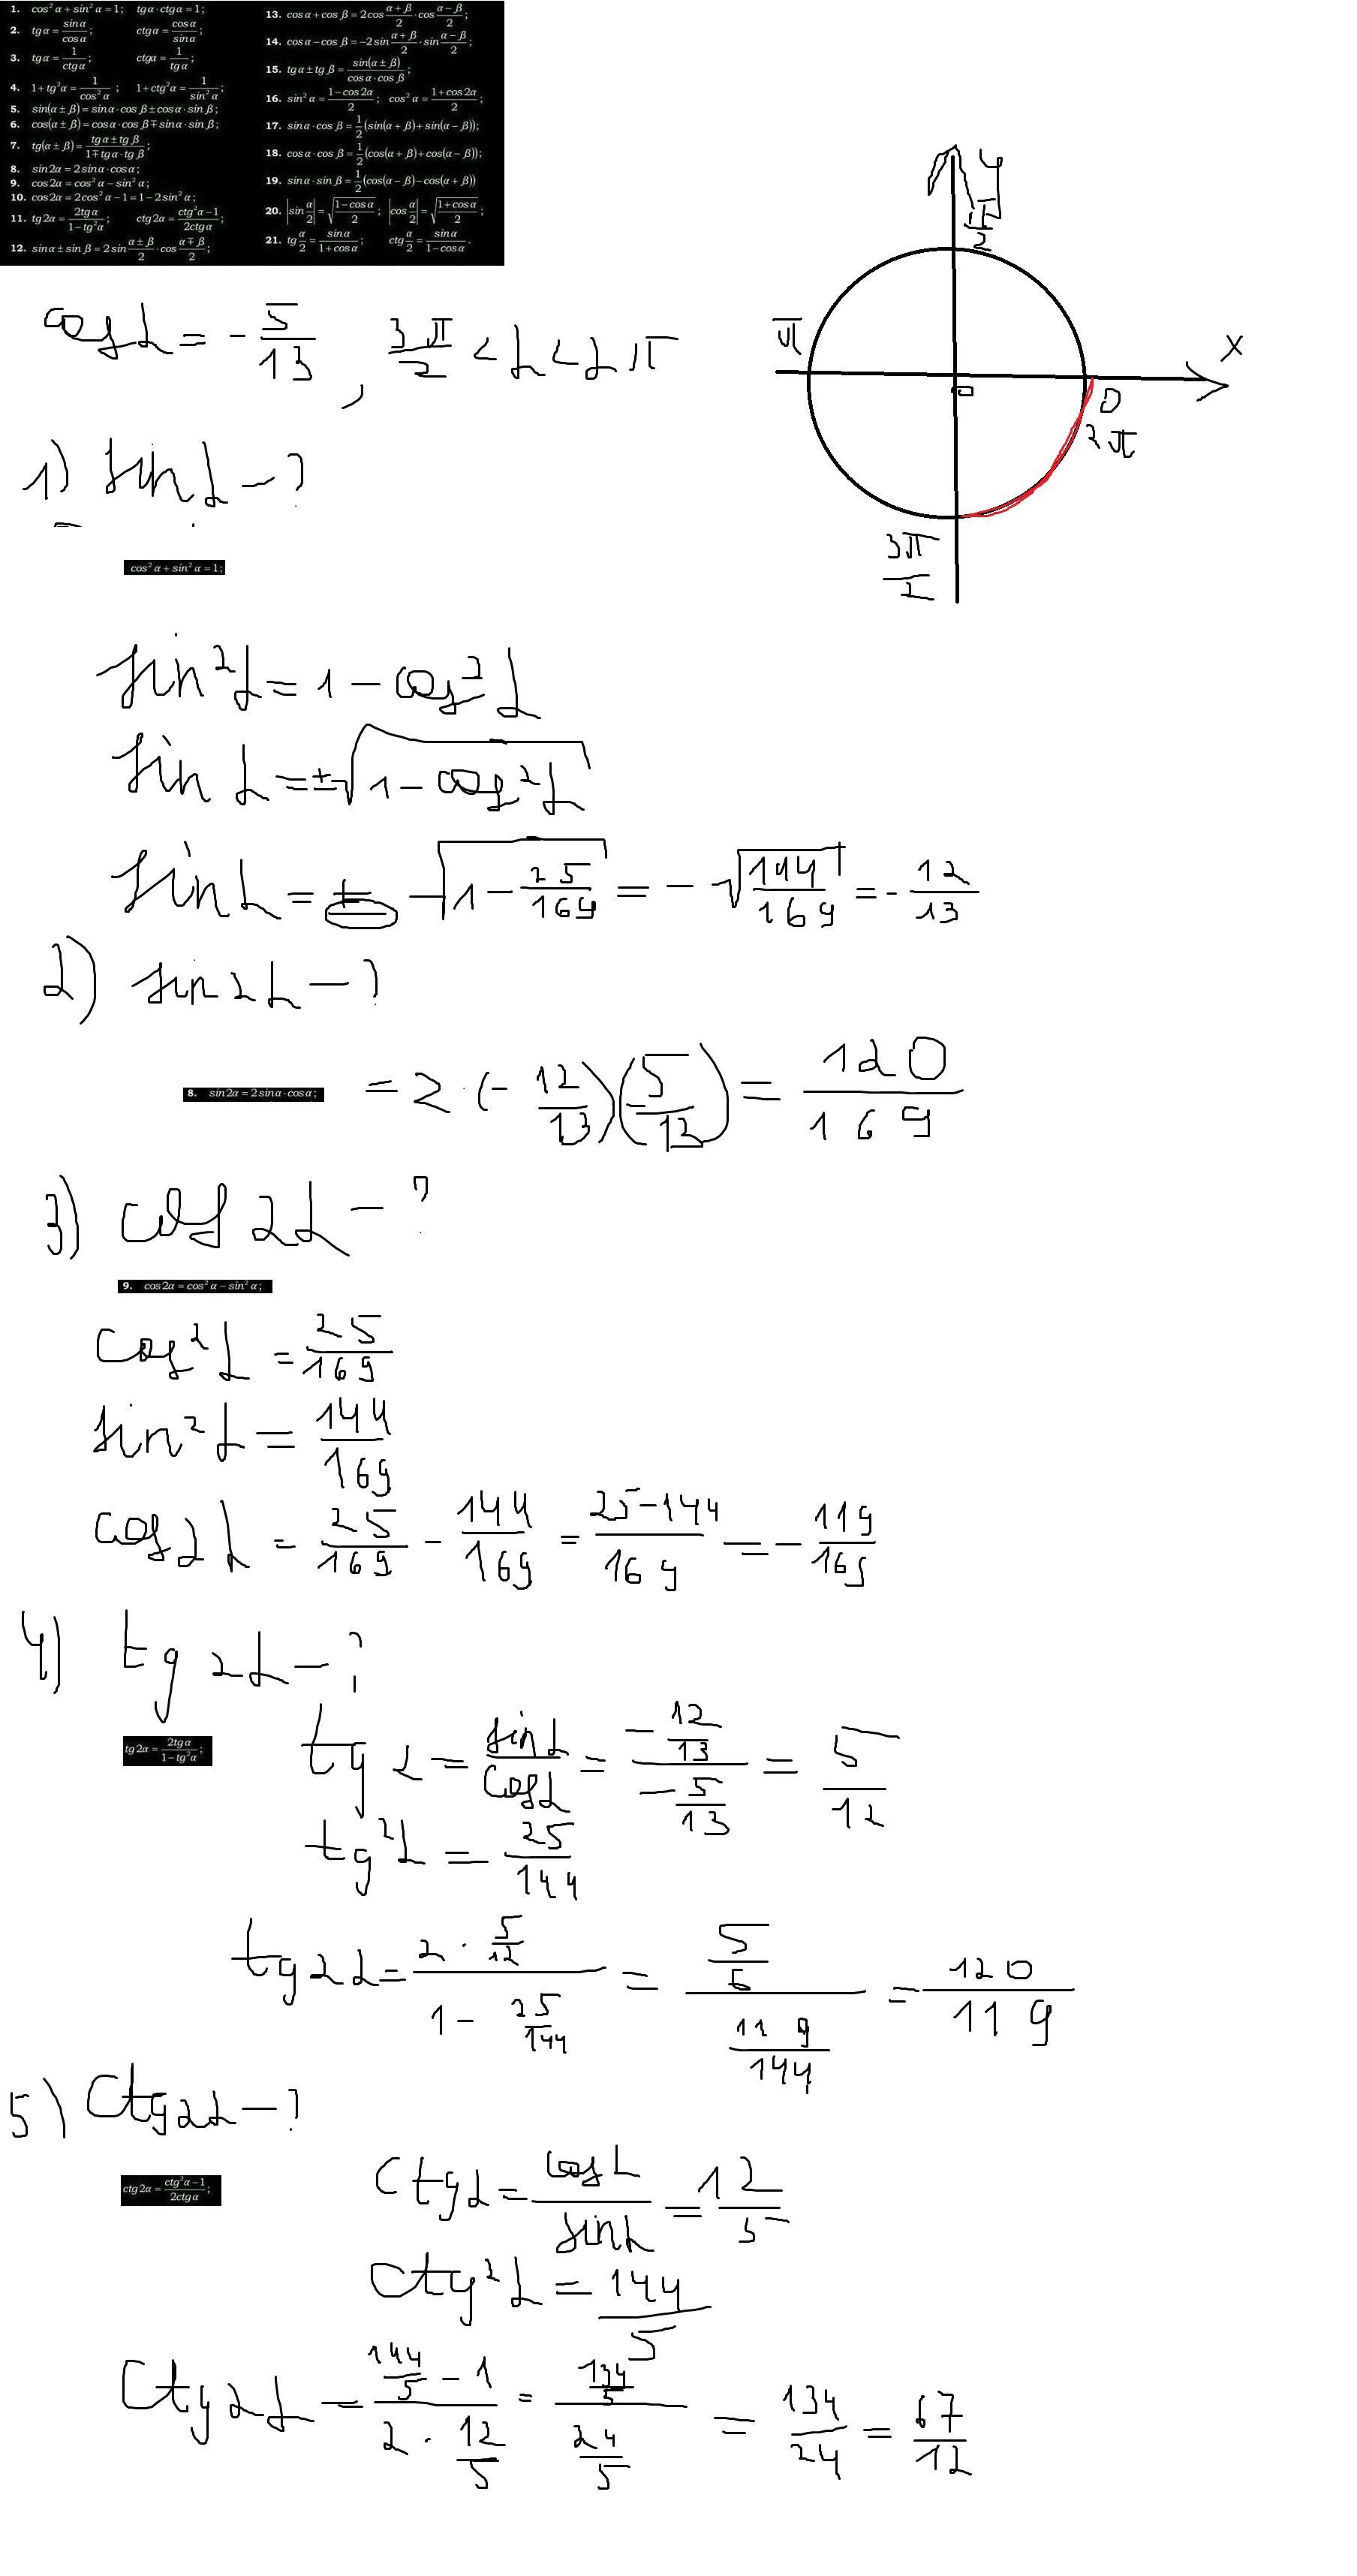 1. cos² α + sin² α = 1; tg α · ctg α = 1;
2. tg α = sin α / cos α; ctg α = cos α / sin α;
3. tg α = 1 / ctg α; ctg α = 1 / tg α;
4. 1 + tg² α = 1 / cos² α; 1 + ctg² α = 1 / sin² α;
5. sin(α ± β) = sin α · cos β ± cos α · sin β;
6. cos(α ± β) = cos α · cos β ∓ sin α · sin β;
7. tg(α ± β) = (tg α ± tg β) / (1 ∓ tg α · tg β);
8. sin 2α = 2 sin α · cos α;
9. cos 2α = cos² α − sin² α;
10. cos 2α = 2 cos² α − 1 = 1 − 2 sin² α;
11. tg 2α = 2tg α / (1 − tg² α); ctg 2α = (ctg² α − 1) / 2ctg α;
12. sin α ± sin β = 2 sin (α ± β)/2 · cos (α ∓ β)/2;
13. cos α + cos β = 2 cos (α + β)/2 · cos (α − β)/2;
14. cos α − cos β = −2 sin (α + β)/2 · sin (α − β)/2;
15. tg α ± tg β = sin(α ± β) / (cos α · cos β);
16. sin² α = (1 − cos 2α)/2; cos² α = (1 + cos 2α)/2;
17. sin α · cos β = 1/2 (sin(α + β) + sin(α − β));
18. cos α · cos β = 1/2 (cos(α + β) + cos(α − β));
19. sin α · sin β = 1/2 (cos(α − β) − cos(α + β))
20. |sin α/2| = √((1 − cos α)/2); |cos α/2| = √((1 + cos α)/2);
21. tg α/2 = sin α / (1 + cos α); ctg α/2 = sin α / (1 − cos α).
y
π/2
π
x
0
0
2π
3π/2
cos α = − 5/13, 3π/2 < α < 2π
1) sin α − ?
cos² α + sin² α = 1;
sin² α = 1 − cos² α
sin α = ±√(1 − cos² α)
sin α = ± √(1 − 25/169) = − √(144/169) = − 12/13
2) sin 2α − ?
8. sin 2α = 2 sin α · cos α; = 2 · (− 12/13)(− 5/13) = 120/169
3) cos 2α − ?
9. cos 2α = cos² α − sin² α;
cos² α = 25/169
sin² α = 144/169
cos 2α = 25/169 − 144/169 = (25 − 144)/169 = − 119/169
4) tg 2α − ?
tg 2α = 2tg α / (1 − tg² α);
tg α = sin α / cos α = (− 12/13) / (− 5/13) = 5/12
tg² α = 25/144
tg 2α = (2 · 5/12) / (1 − 25/144) = (5/6) / (119/144) = 120/119
5) ctg 2α − ?
ctg 2α = (ctg² α − 1) / 2ctg α;
ctg α = cos α / sin α = 12/5
ctg² α = 144/5
ctg 2α = (144/5 − 1) / (2 · 12/5) = (134/5) / (24/5) = 134/24 = 67/12